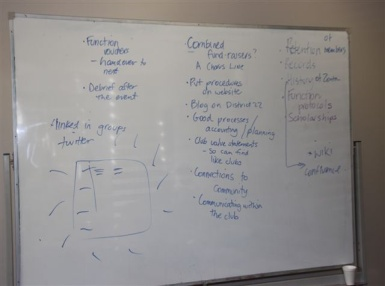 • Function
- handover to
next
• Debrief after
the event
• linked in groups
- twitter
Combined
fund-raisers?
A Chorus Line
• Put procedures
on website
• Blog on District 22
• Good processes /
accounting / planning
• Club value statements
- so can find
like clubs
• Connections to
Community
• Communicating within
the club
• Retention of
members
• Records
• Function
protocols
• Scholarships
• Wiki
confluence